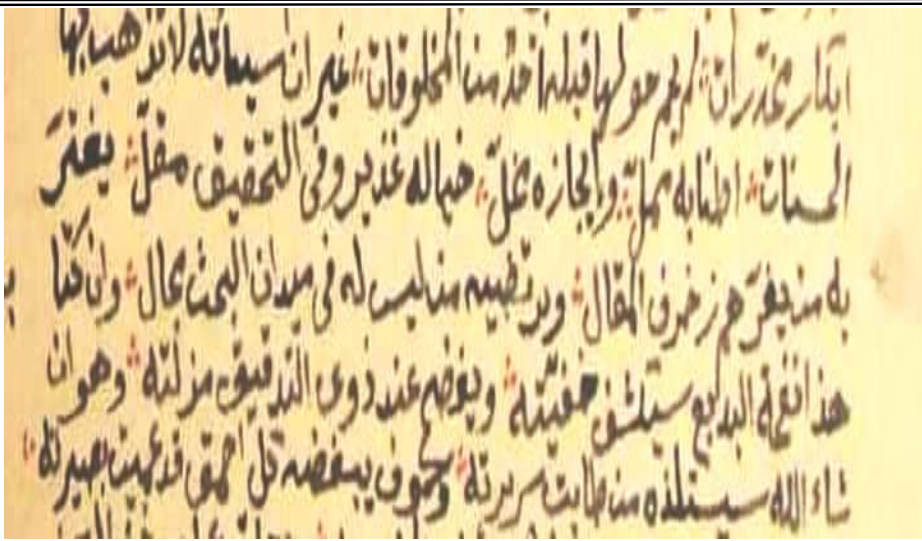 ابكار مخدرات لم يحم حولها قبله احد من المخلوقات غير ان سيئاته لا تذهب بها
الحسنات اطنابه ممل وايجازه مخل خياله غدير وفى التحقيق مقل يغتر
به من يغرهم زخرف المقال ويرتضيه من ليس له فى ميدان البحث مجال وان
هذا البديع خفيته ويفضح عند ذوى التدقيق وهو ان
شاء الله سيستلذه من طابت سريرته يبغضه كل احمق قد عميت بصيرته